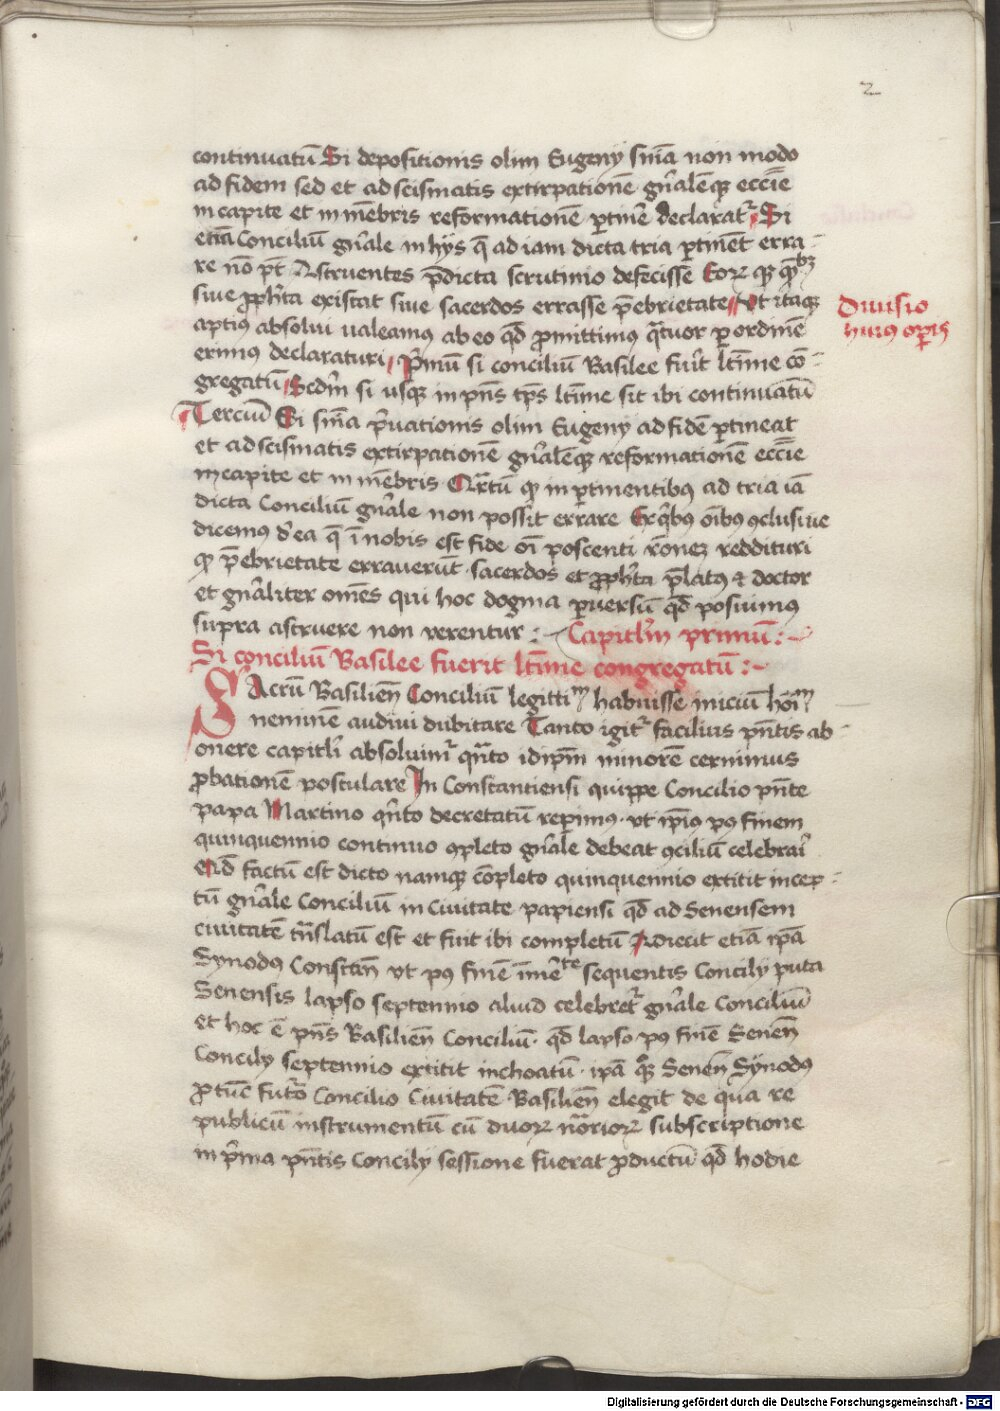 2
continuatū Si depositionis olim Eugenÿ sn̄ia non modo
ad fidem sed et ad scismatis extirpationē gn̄alēqꝫ eccīe
in capite et in mēbris reformationē ꝑtinēr declarat᷑ Si
etiā Conciliū gn̄ale in hÿs q̄ ad iam dicta tria ꝑtinēt erra
re nō pt̄ Astruentes p̄dicta scrutinio defecisse Eoꝝ qꝫ
siue ꝓph̄ta existat siue sacerdos errasse p̄ ebrietate Vt itaqꝫ
aptius absolui ualeamꝰ ab eo qd̄ ꝓmittimꝰ q̄tuor ꝑ ordinē
erimꝰ declaraturi Pͥmū si conciliū Basilee fuīt ltīme cō
gregatū Scdm̄ si usqꝫ in pn̄s tp̄s ltīme sit ibi continuatū
Terciū Si sn̄ia pͥuationis olim Eugenÿ ad fidē ꝑtineat
et ad scismatis extirpationē gn̄alēqꝫ reformationē eccīe
in capite et in mēbris Qͣrtū qꝫ in ꝑtinentibꝰ ad tria iā
dicta Conciliū gn̄ale non possit errare Ex qͥbꝰ oībꝰ ꝯclusiue
dicemꝰ d' ea q̄ ī nobis est fide oī poscenti rōneꝫ reddituri
qꝫ p̄ ebrietate erraverūt sacerdos et ꝓph̄ta p̄latꝰ et doctor
et gn̄aliter om̄es qui hoc dogma ꝑuersū qd̄ posuimꝰ
supra astruere non verentur :~ Capitl̄m primū :~
Si conciliū Basilee fuerit ltīme congregatū :~
SAcrū Basilien̄ Conciliū legittim habuisse iniciū hoīm
neminē audiui dubitare Tanto igit᷑ facilius pn̄tis ab
onere capitl̄i absoluim᷑ qn̄to idip̄m minorē cernimus
ꝓbationē postulare In Constantiensi quippe Concilio pn̄te
papa Martino qn̄to decretatū reꝑimꝰ vt ip̄iꝰ pꝰ finem
quinquennio continuo ꝯpleto gn̄ale debeat ꝯciliū celebrari
Qd̄ factū est dicto namqꝫ cōpleto quinquennio extitit incep
tū gn̄ale Conciliū in Ciuitate papiensi qd̄ ad Senensem
ciuitatē trn̄slatū est et fuit ibi completū Adiecit etiā ip̄a
Synodꝰ Constan̄ vt pꝰ finē īmēte sequentis Concilÿ puta
Senensis lapso septennio aliud celebret᷑ gn̄ale Conciliū
et hoc ē pn̄s Basilien̄ Conciliū qd̄ lapso pꝰ finē Senen̄
Concilÿ septennio extitit inchoatū ip̄a qꝫ Senen̄ Synodꝰ
ꝓ tūc futͦo Concilio Ciuitatē Basilien̄ elegit de qua re
publicū instrumentū cū duoꝝ notͣrioꝝ subscriptione
in pͥma pn̄tis Concilÿ sessione fuerat ꝓductū qd̄ hodie
Diuisio
huiꝰ oꝑis
Digitalisierung gefördert durch die Deutsche Forschungsgemeinschaft - DFG